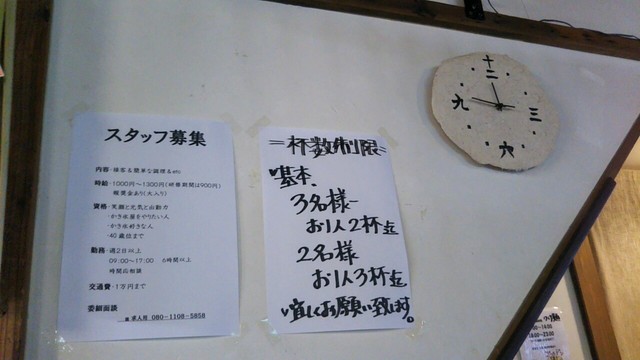 スタッフ募集
内容・接客&簡単な調理&etc
時給・1000円～1300円(研修期間は900円)
報奨金あり(大入り)
資格・笑顔と元気と出勤力
・かき氷屋をやりたい人
・かき氷好きな人
・40歳位まで
勤務・週2日以上
09:00～17:00 6時間以上
時間応相談
交通費・1万円まで
委細面談
求人用 080-1108-5858
=杯数制限=
基本、
3名様～
お1人2杯迄
2名様
お1人3杯迄
宜しくお願い致します。
十二
三
六
九